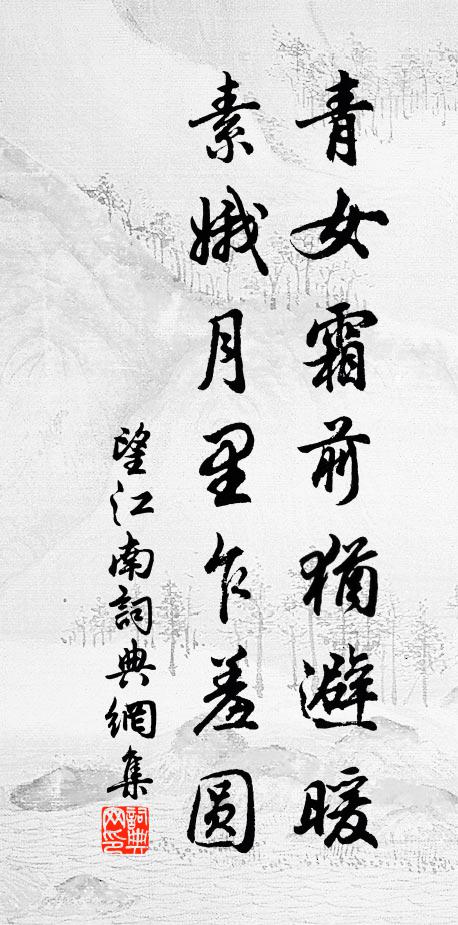 青女霜前猶避暖
素娥月里乍羞圆
望江南詞典網集
詞典
网印